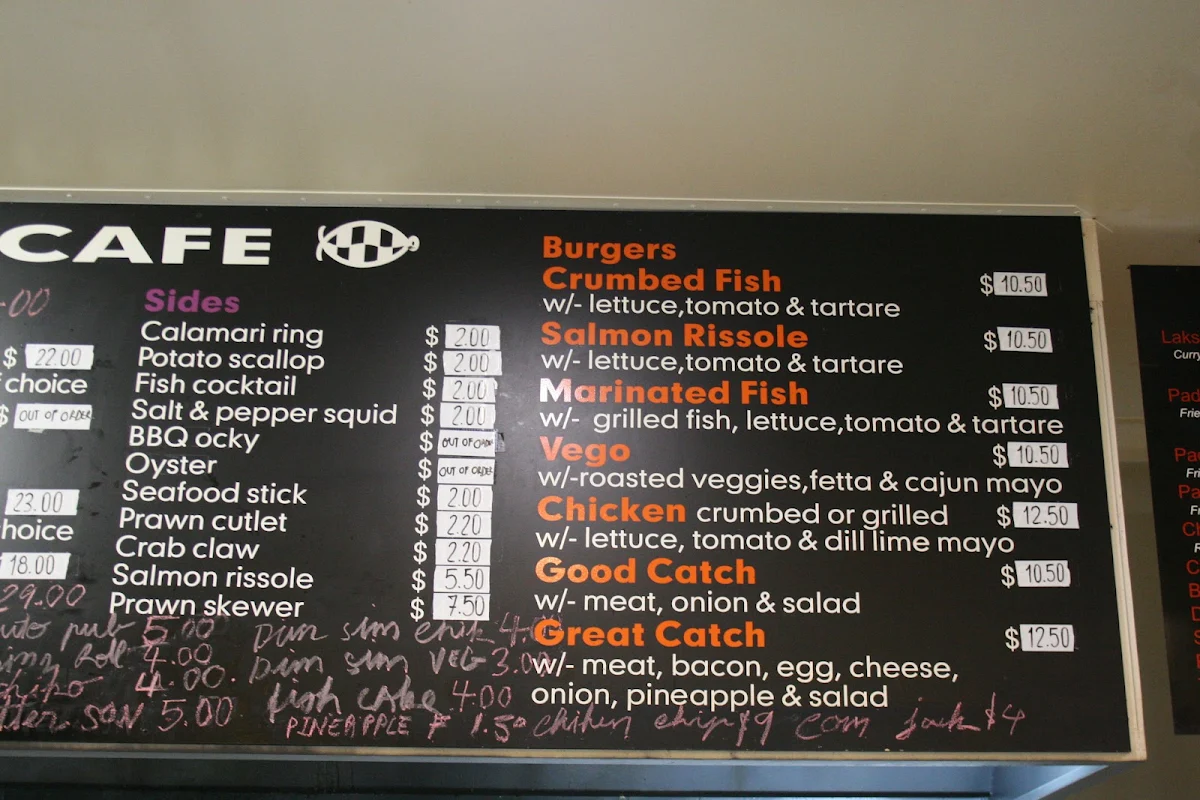 CAFE
00
$ 22.00
choice
$ OUT OF ORDER
23.00
hoice
18.00
29.00
Sides
Calamari ring $ 2.00
Potato scallop $ 2.00
Fish cocktail $ 2.00
Salt & pepper squid $ 2.00
BBQ ocky $ OUT OF ORDER
Oyster $ OUT OF ORDER
Seafood stick $ 2.00
Prawn cutlet $ 2.20
Crab claw $ 2.20
Salmon rissole $ 5.50
Prawn skewer $ 7.50
5.00 Dim sim chik 4.00
Roll 4.00 Dim sim VEG 3.00
4.00. fish cake 4.00
5.00 PINEAPPLE 1.50 chiken chip $9 corn jack $4
Burgers
Crumbed Fish $ 10.50
w/- lettuce,tomato & tartare
Salmon Rissole $ 10.50
w/- lettuce,tomato & tartare
Marinated Fish $ 10.50
w/- grilled fish, lettuce,tomato & tartare
Vego $ 10.50
w/-roasted veggies,fetta & cajun mayo
Chicken crumbed or grilled $ 12.50
w/- lettuce, tomato & dill lime mayo
Good Catch $ 10.50
w/- meat, onion & salad
Great Catch $ 12.50
w/- meat, bacon, egg, cheese,
onion, pineapple & salad
Laks
Curry
Pad
Frie